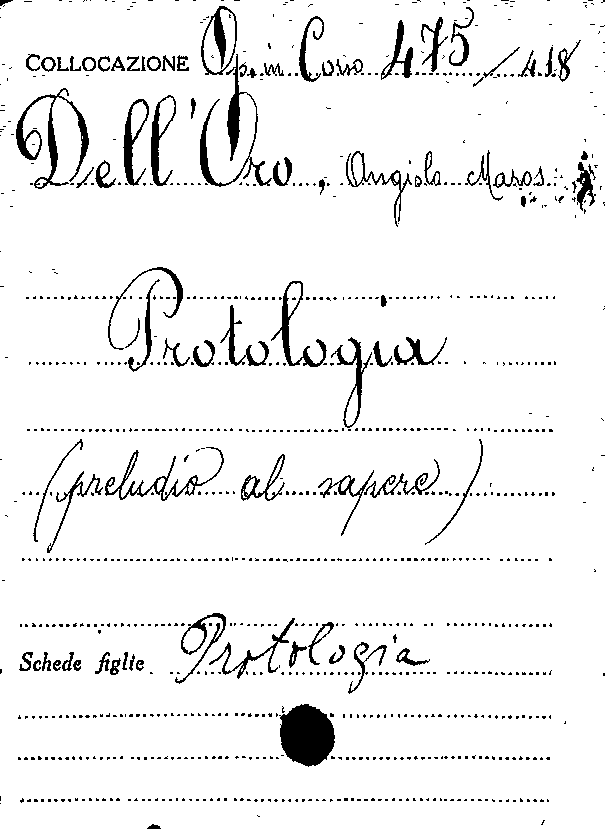 COLLOCAZIONE Op. in Corso 475/418
Dell'Oro, Angiolo Maros
Protologia
(preludio al sapere)
Schede figlie Protologia